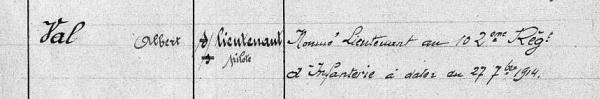 Val Albert S/lieutenant Nommé Lieutenant au 102eme Régt
pilote d'Infanterie à dater du 27 7bre 1914.